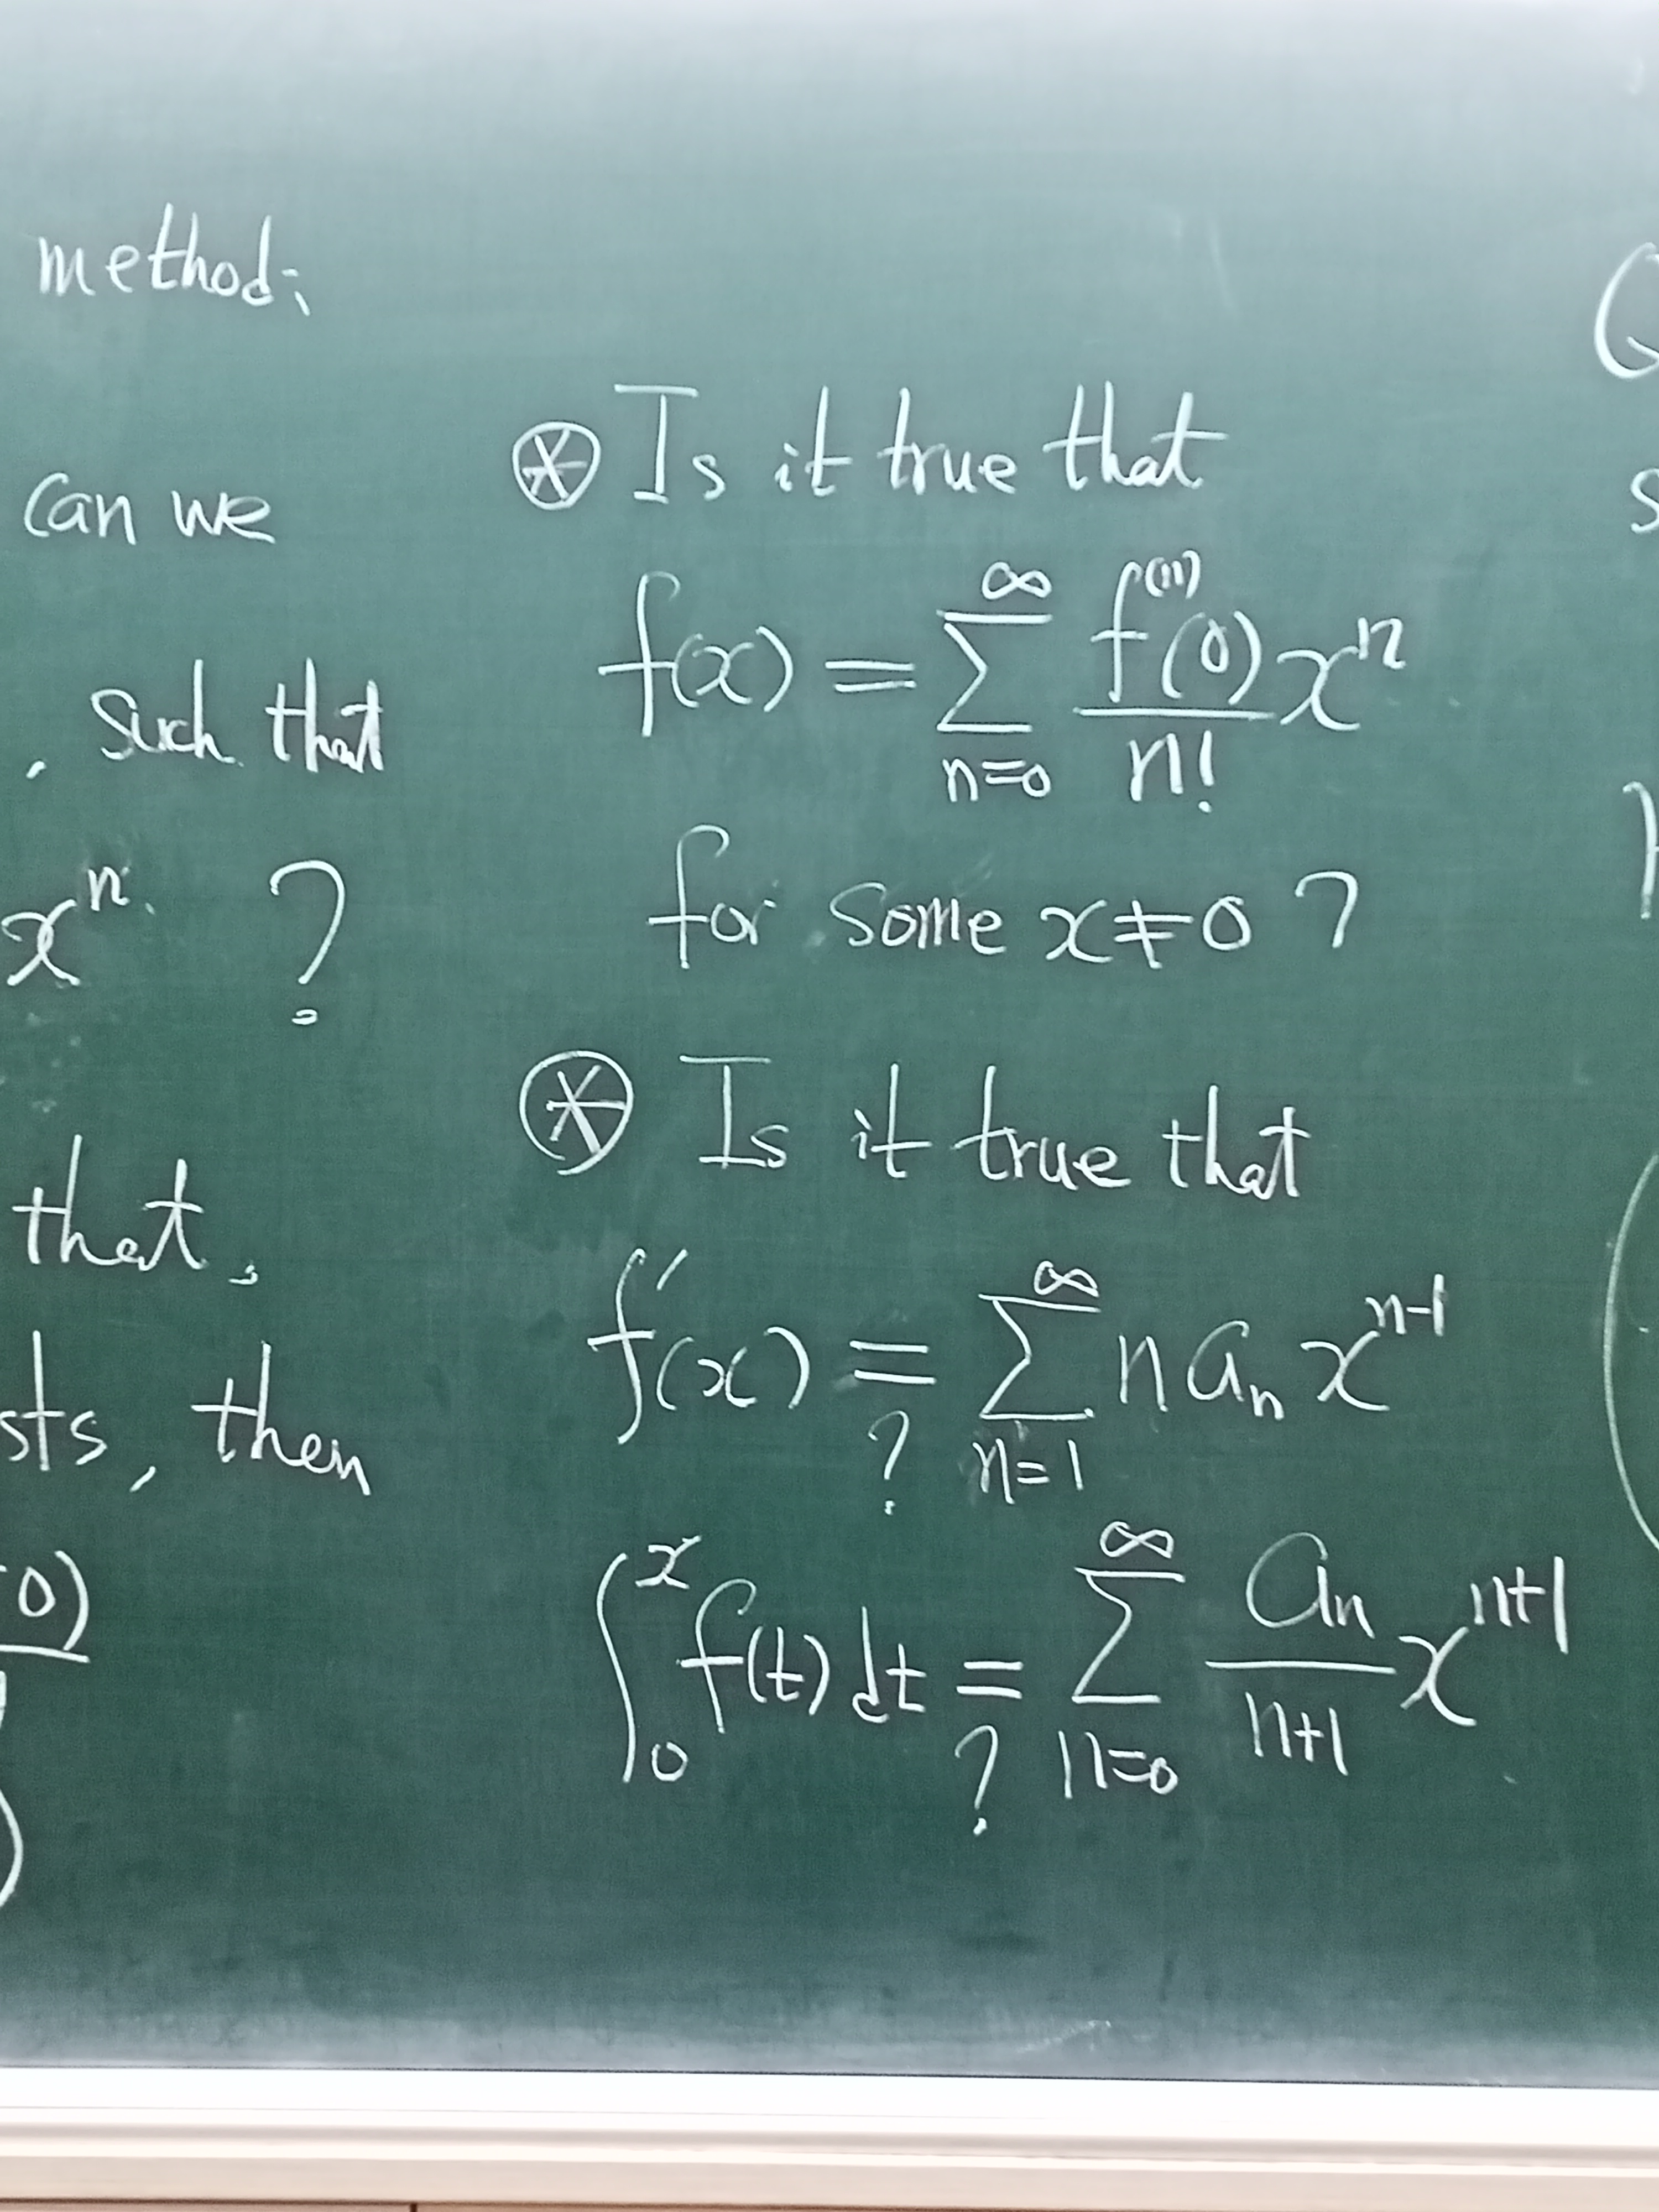 method:
can we
, such that
xⁿ ?
that,
sts, then
0)
⊛ Is it true that
f(x) = ∑_{n=0}^{∞} \frac{f^{(n)}(0)}{n!} xⁿ
for some x≠0 ?
⊛ Is it true that
f'(x) =_{?} ∑_{n=1}^{∞} n aₙ x^{n-1}
∫_{0}^{x} f(t) dt =_{?} ∑_{n=0}^{∞} \frac{aₙ}{n+1} x^{n+1}